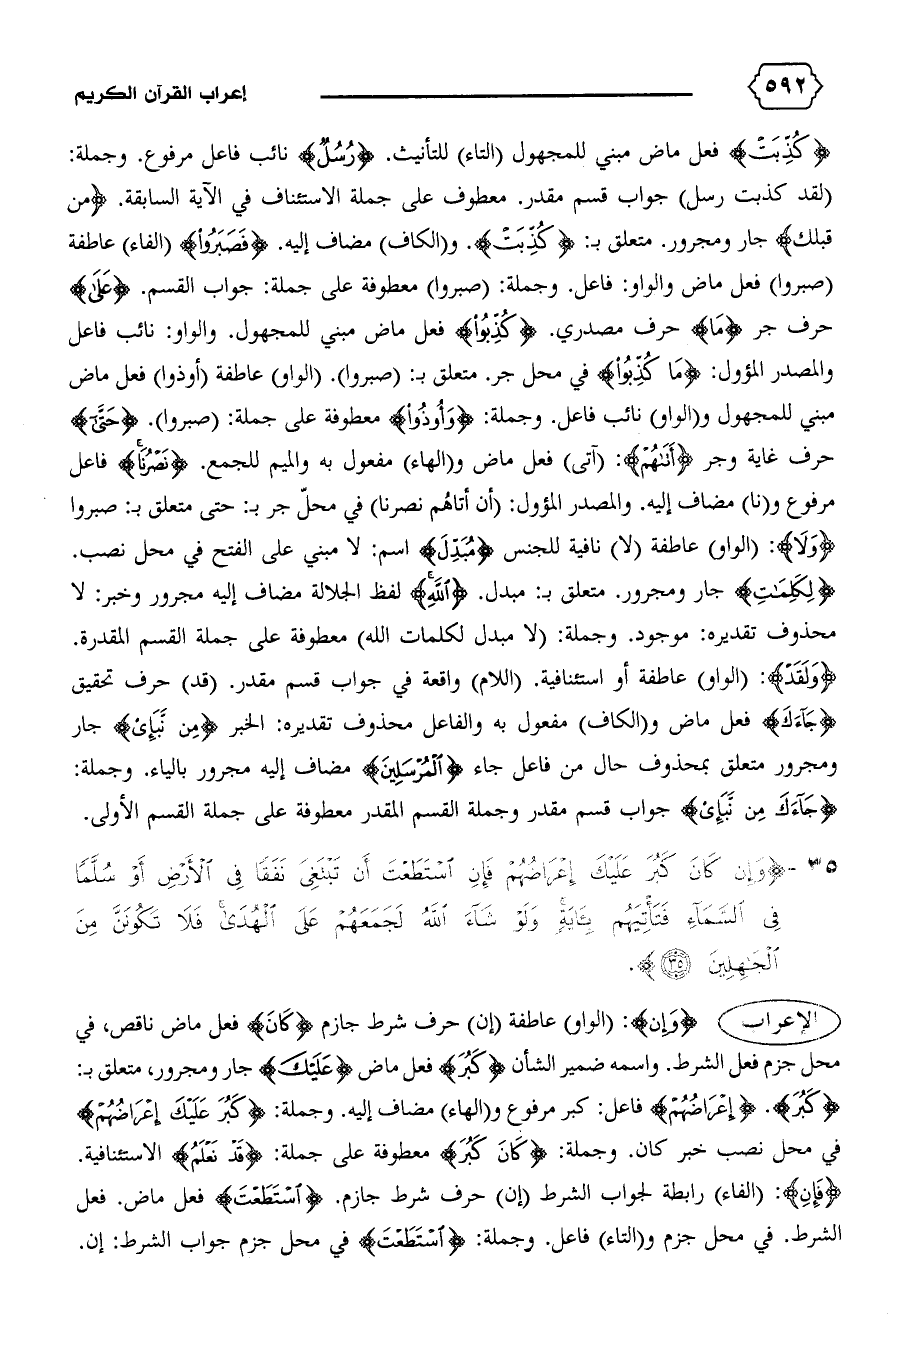 ٥٩٢ إعراب القرآن الكريم
﴿كُذِّبَتْ﴾ فعل ماض مبني للمجهول (التاء) للتأنيث. ﴿رُسُلٌ﴾ نائب فاعل مرفوع. وجملة:
(لقد كذبت رسل) جواب قسم مقدر. معطوف على جملة الاستئناف في الآية السابقة. ﴿من
قبلك﴾ جار ومجرور. متعلق بـ: ﴿كُذِّبَتْ﴾. و(الكاف) مضاف إليه. ﴿فَصَبَرُوا۟﴾ (الفاء) عاطفة
(صبروا) فعل ماض والواو: فاعل. وجملة: (صبروا) معطوفة على جملة: جواب القسم. ﴿عَلَىٰ﴾
حرف جر ﴿مَا﴾ حرف مصدري. ﴿كُذِّبُوا۟﴾ فعل ماض مبني للمجهول. والواو: نائب فاعل
والمصدر المؤول: ﴿مَا كُذِّبُوا۟﴾ في محل جر. متعلق بـ: (صبروا). (الواو) عاطفة (أوذوا) فعل ماض
مبني للمجهول و(الواو) نائب فاعل. وجملة: ﴿وَأُوذُوا۟﴾ معطوفة على جملة: (صبروا). ﴿حَتَّىٰٓ﴾
حرف غاية وجر ﴿أَتَىٰهُمْ﴾: (أتى) فعل ماض و(الهاء) مفعول به والميم للجمع. ﴿نَصْرُنَا ۚ﴾ فاعل
مرفوع و(نا) مضاف إليه. والمصدر المؤول: (أن أتاهُم نصرنا) في محلّ جر بـ: حتى متعلق بـ: صبروا
﴿وَلَا﴾: (الواو) عاطفة (لا) نافية للجنس ﴿مُبَدِّلَ﴾ اسم: لا مبني على الفتح في محل نصب.
﴿لِكَلِمَـٰتِ﴾ جار ومجرور. متعلق بـ: مبدل. ﴿ٱللَّهِ ۚ﴾ لفظ الجلالة مضاف إليه مجرور وخبر: لا
محذوف تقديره: موجود. وجملة: (لا مبدل لكلمات الله) معطوفة على جملة القسم المقدرة.
﴿وَلَقَدْ﴾: (الواو) عاطفة أو استئنافية. (اللام) واقعة في جواب قسم مقدر. (قد) حرف تحقيق
﴿جَآءَكَ﴾ فعل ماض و(الكاف) مفعول به والفاعل محذوف تقديره: الخبر ﴿مِن نَّبَإِى۟﴾ جار
ومجرور متعلق بمحذوف حال من فاعل جاء ﴿ٱلْمُرْسَلِينَ﴾ مضاف إليه مجرور بالياء. وجملة:
﴿جَآءَكَ مِن نَّبَإِى۟﴾ جواب قسم مقدر وجملة القسم المقدر معطوفة على جملة القسم الأولى.
٣٥ - ﴿وَإِن كَانَ كَبُرَ عَلَيْكَ إِعْرَاضُهُمْ فَإِنِ ٱسْتَطَعْتَ أَن تَبْتَغِىَ نَفَقًا فِى ٱلْأَرْضِ أَوْ سُلَّمًا
فِى ٱلسَّمَآءِ فَتَأْتِيَهُم بِـَٔايَةٍ ۚ وَلَوْ شَآءَ ٱللَّهُ لَجَمَعَهُمْ عَلَى ٱلْهُدَىٰ ۚ فَلَا تَكُونَنَّ مِنَ
ٱلْجَـٰهِلِينَ ٣٥﴾.
الإعراب ﴿وَإِن﴾: (الواو) عاطفة (إن) حرف شرط جازم ﴿كَانَ﴾ فعل ماض ناقص، في
محل جزم فعل الشرط. واسمه ضمير الشأن ﴿كَبُرَ﴾ فعل ماض ﴿عَلَيْكَ﴾ جار ومجرور، متعلق بـ:
﴿كَبُرَ﴾. ﴿إِعْرَاضُهُمْ﴾ فاعل: كبر مرفوع و(الهاء) مضاف إليه. وجملة: ﴿كَبُرَ عَلَيْكَ إِعْرَاضُهُمْ﴾
في محل نصب خبر كان. وجملة: ﴿كَانَ كَبُرَ﴾ معطوفة على جملة: ﴿قَدْ نَعْلَمُ﴾ الاستئنافية.
﴿فَإِنِ﴾: (الفاء) رابطة لجواب الشرط (إن) حرف شرط جازم. ﴿ٱسْتَطَعْتَ﴾ فعل ماض. فعل
الشرط. في محل جزم و(التاء) فاعل. وجملة: ﴿ٱسْتَطَعْتَ﴾ في محل جزم جواب الشرط: إن.